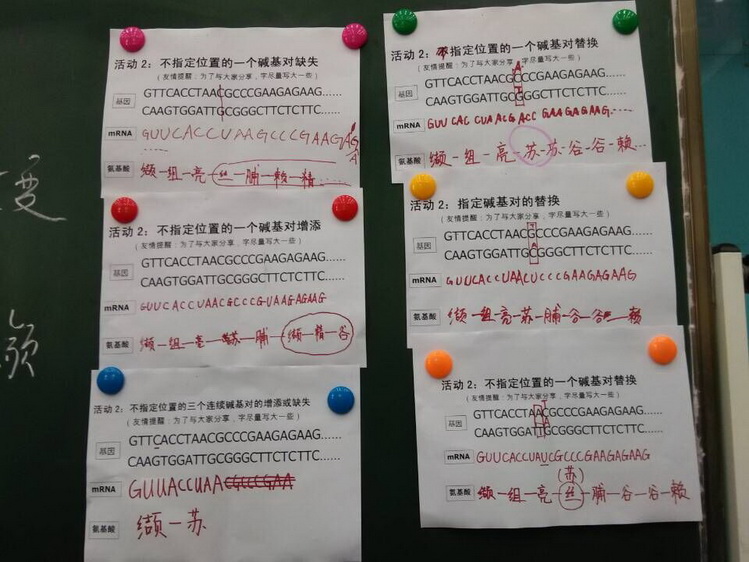 活动2：不指定位置的一个碱基对缺失
（友情提醒：为了与大家分享，字尽量写大一些）
基因
GTTCACCTAACGCCCGAAGAGAAG……
CAAGTGGATTGCGGGCTTCTCTTC……
mRNA
GUUCACCUAAGCCCGAAGAG
氨基酸
缬-组-亮-丝-脯-赖-精……
活动2：不指定位置的一个碱基对增添
（友情提醒：为了与大家分享，字尽量写大一些）
基因
GTTCACCTAACGCCCGAAGAGAAG……
CAAGTGGATTGCGGGCTTCTCTTC……
mRNA
GUUCACCUAACGCCCGUAAGAGAAG
氨基酸
缬-组-亮-苏-脯-缬-精-谷
活动2：不指定位置的三个连续碱基对的增添或缺失
（友情提醒：为了与大家分享，字尽量写大一些）
基因
GTTCACCTAACGCCCGAAGAGAAG……
CAAGTGGATTGCGGGCTTCTCTTC……
mRNA
GUUACCUAA
氨基酸
缬-苏
变
颁
活动2：不指定位置的一个碱基对替换
（友情提醒：为了与大家分享，字尽量写大一些）
A
基因
GTTCACCTAACGCCCGAAGAGAAG……
CAAGTGGATTGCGGGCTTCTCTTC……
T
mRNA
GUUCACCUAACGACCGAAGAGAAG……
氨基酸
缬-组-亮-苏-苏-谷-谷-赖……
活动2：指定碱基对的替换
（友情提醒：为了与大家分享，字尽量写大一些）
T
基因
GTTCACCTAACGCCCGAAGAGAAG……
A
CAAGTGGATTGCGGGCTTCTCTTC……
mRNA
GUUCACCUAACUCCCGAAGAGAAG
氨基酸
缬-组-亮-苏-脯-谷-谷-赖
活动2：不指定位置的一个碱基对替换
（友情提醒：为了与大家分享，字尽量写大一些）
T
基因
GTTCACCTAACGCCCGAAGAGAAG……
CAAGTGGATTGCGGGCTTCTCTTC……
mRNA
GUUCACCUAUCGCCCGAAGAGAAG
（苏）
氨基酸
缬-组-亮-丝-脯-谷-谷-赖